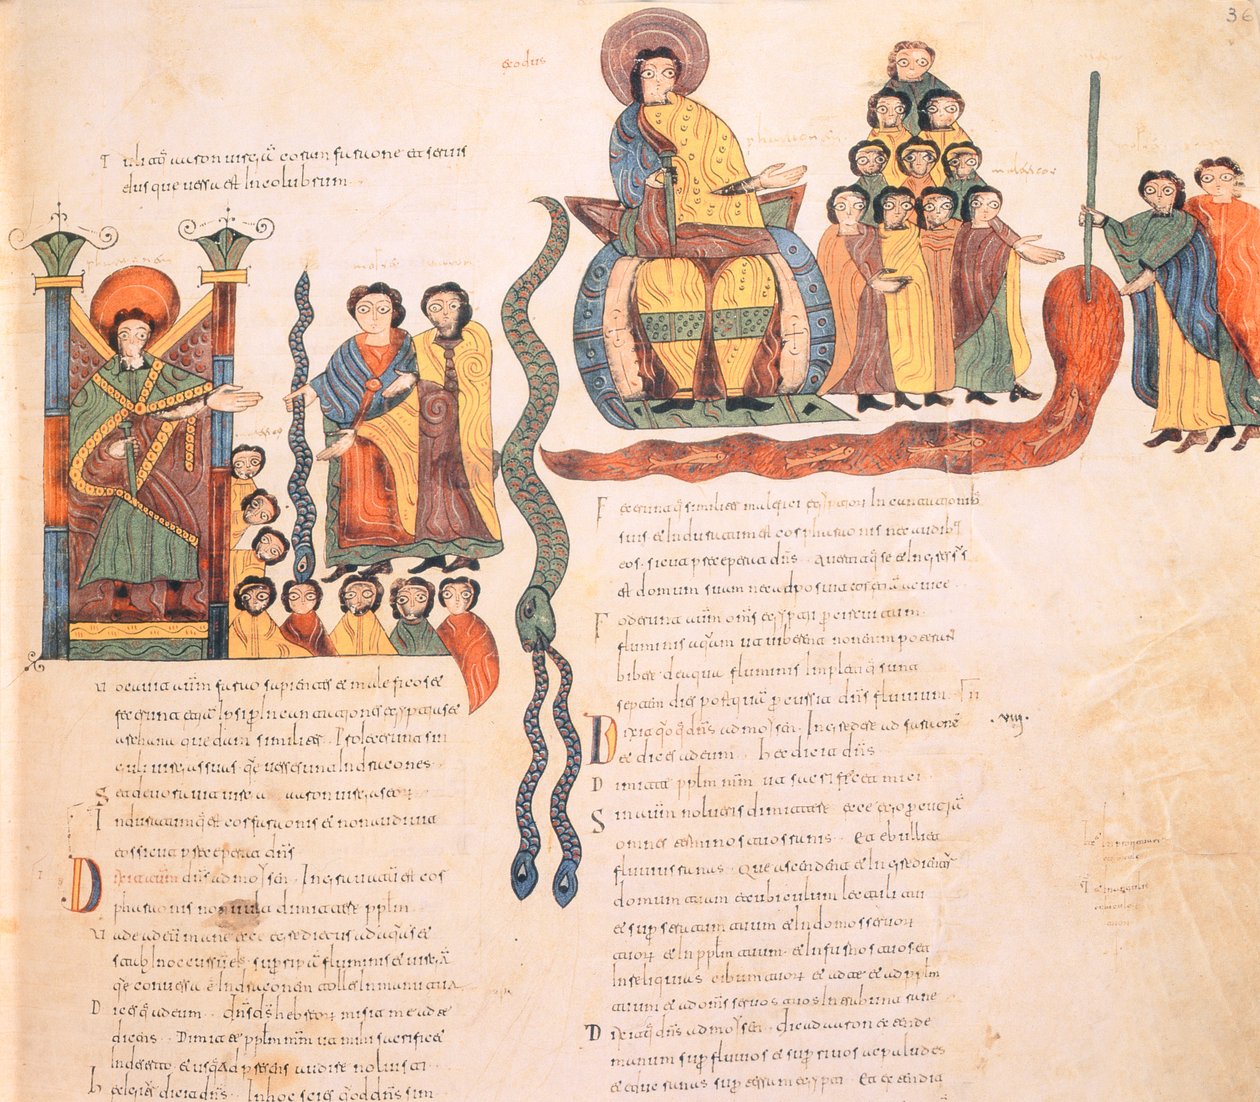 36
exodus
Tulitq̄ aaron uirgā coram faraone et seruis
eius que uersa est In colubrum
Uocauit aūtm farao sapientes et maleficos et
fecerunt etiā Ipsi p Incantationes egyptiacas
archana quedam similitr. Proiecerunt sin
guli uirgas suas q̄e uerse sunt Indracones
Sed deuorauit uirga aaron uirgas eor
Induratumq̄ est cor faraonis et non audiuit
eos sicut preceperat dn̄s
Dixit aūtm dn̄s ad mosen. Ingrauatū est cor
pharaonis non uult dimittere pplm
Uade ad eūm mane ecce egredietur ad aquas et
stabis Inoccursū eius sup ripā fluminis et uirgā
q̄e conuersa ē Indraconem tolle Inmanu tua
Dicesq̄ ad eum. dn̄s ds hebreor misit me ad te
dicens. Dimitte pplm mm ut mihi sacrificet
Indeserto et usq̄ ad presens audire noluisti
hec igitr dicit dn̄s. Inhoc scies qd dn̄s sim
Fecerunt q̄ similitr malefici egyptior Incantationib
suis et Induratum est cor pharaonis nec audibit
eos sicut preceperat dn̄s. Auertitq̄ se et Ingressus
est domum suam nec adposuit cor etiā ac uice
Foderunt aūtm oms egyptii per circuitum
fluminis aq̄am ut biberent non enim poterant
bibere de aqua fluminis Impletiq̄ sunt
septem dies postquā percussit dn̄s fluuium
Dixit q̄oq̄ dn̄s ad mosen. Ingredere ad faraonē
et dices ad eum. hec dicit dn̄s
.VIII.
Dimitte pplm mm ut sacrificet mici
Sin aūtm nolueris dimittere ecce ego percutiā
omnes terminos tuos ranis. Et ebulliet
fluuius ranas. Que ascendent et Ingredientr
domum tuam et cubiculum lectuli tui
et sup stratum tuum et Indomos seruor
tuor et Inpplm tuum et Infurnos tuos et
Inreliquias cibum tuor et ad te et ad pplm
tuum et ad oms seruos tuos Intrabunt rane
Dixitq̄ dn̄s ad mosen. dic ad aaron extende
manum sup fluuios et sup riuos ac paludes
et educ ranas sup terram egypti. Et extendit